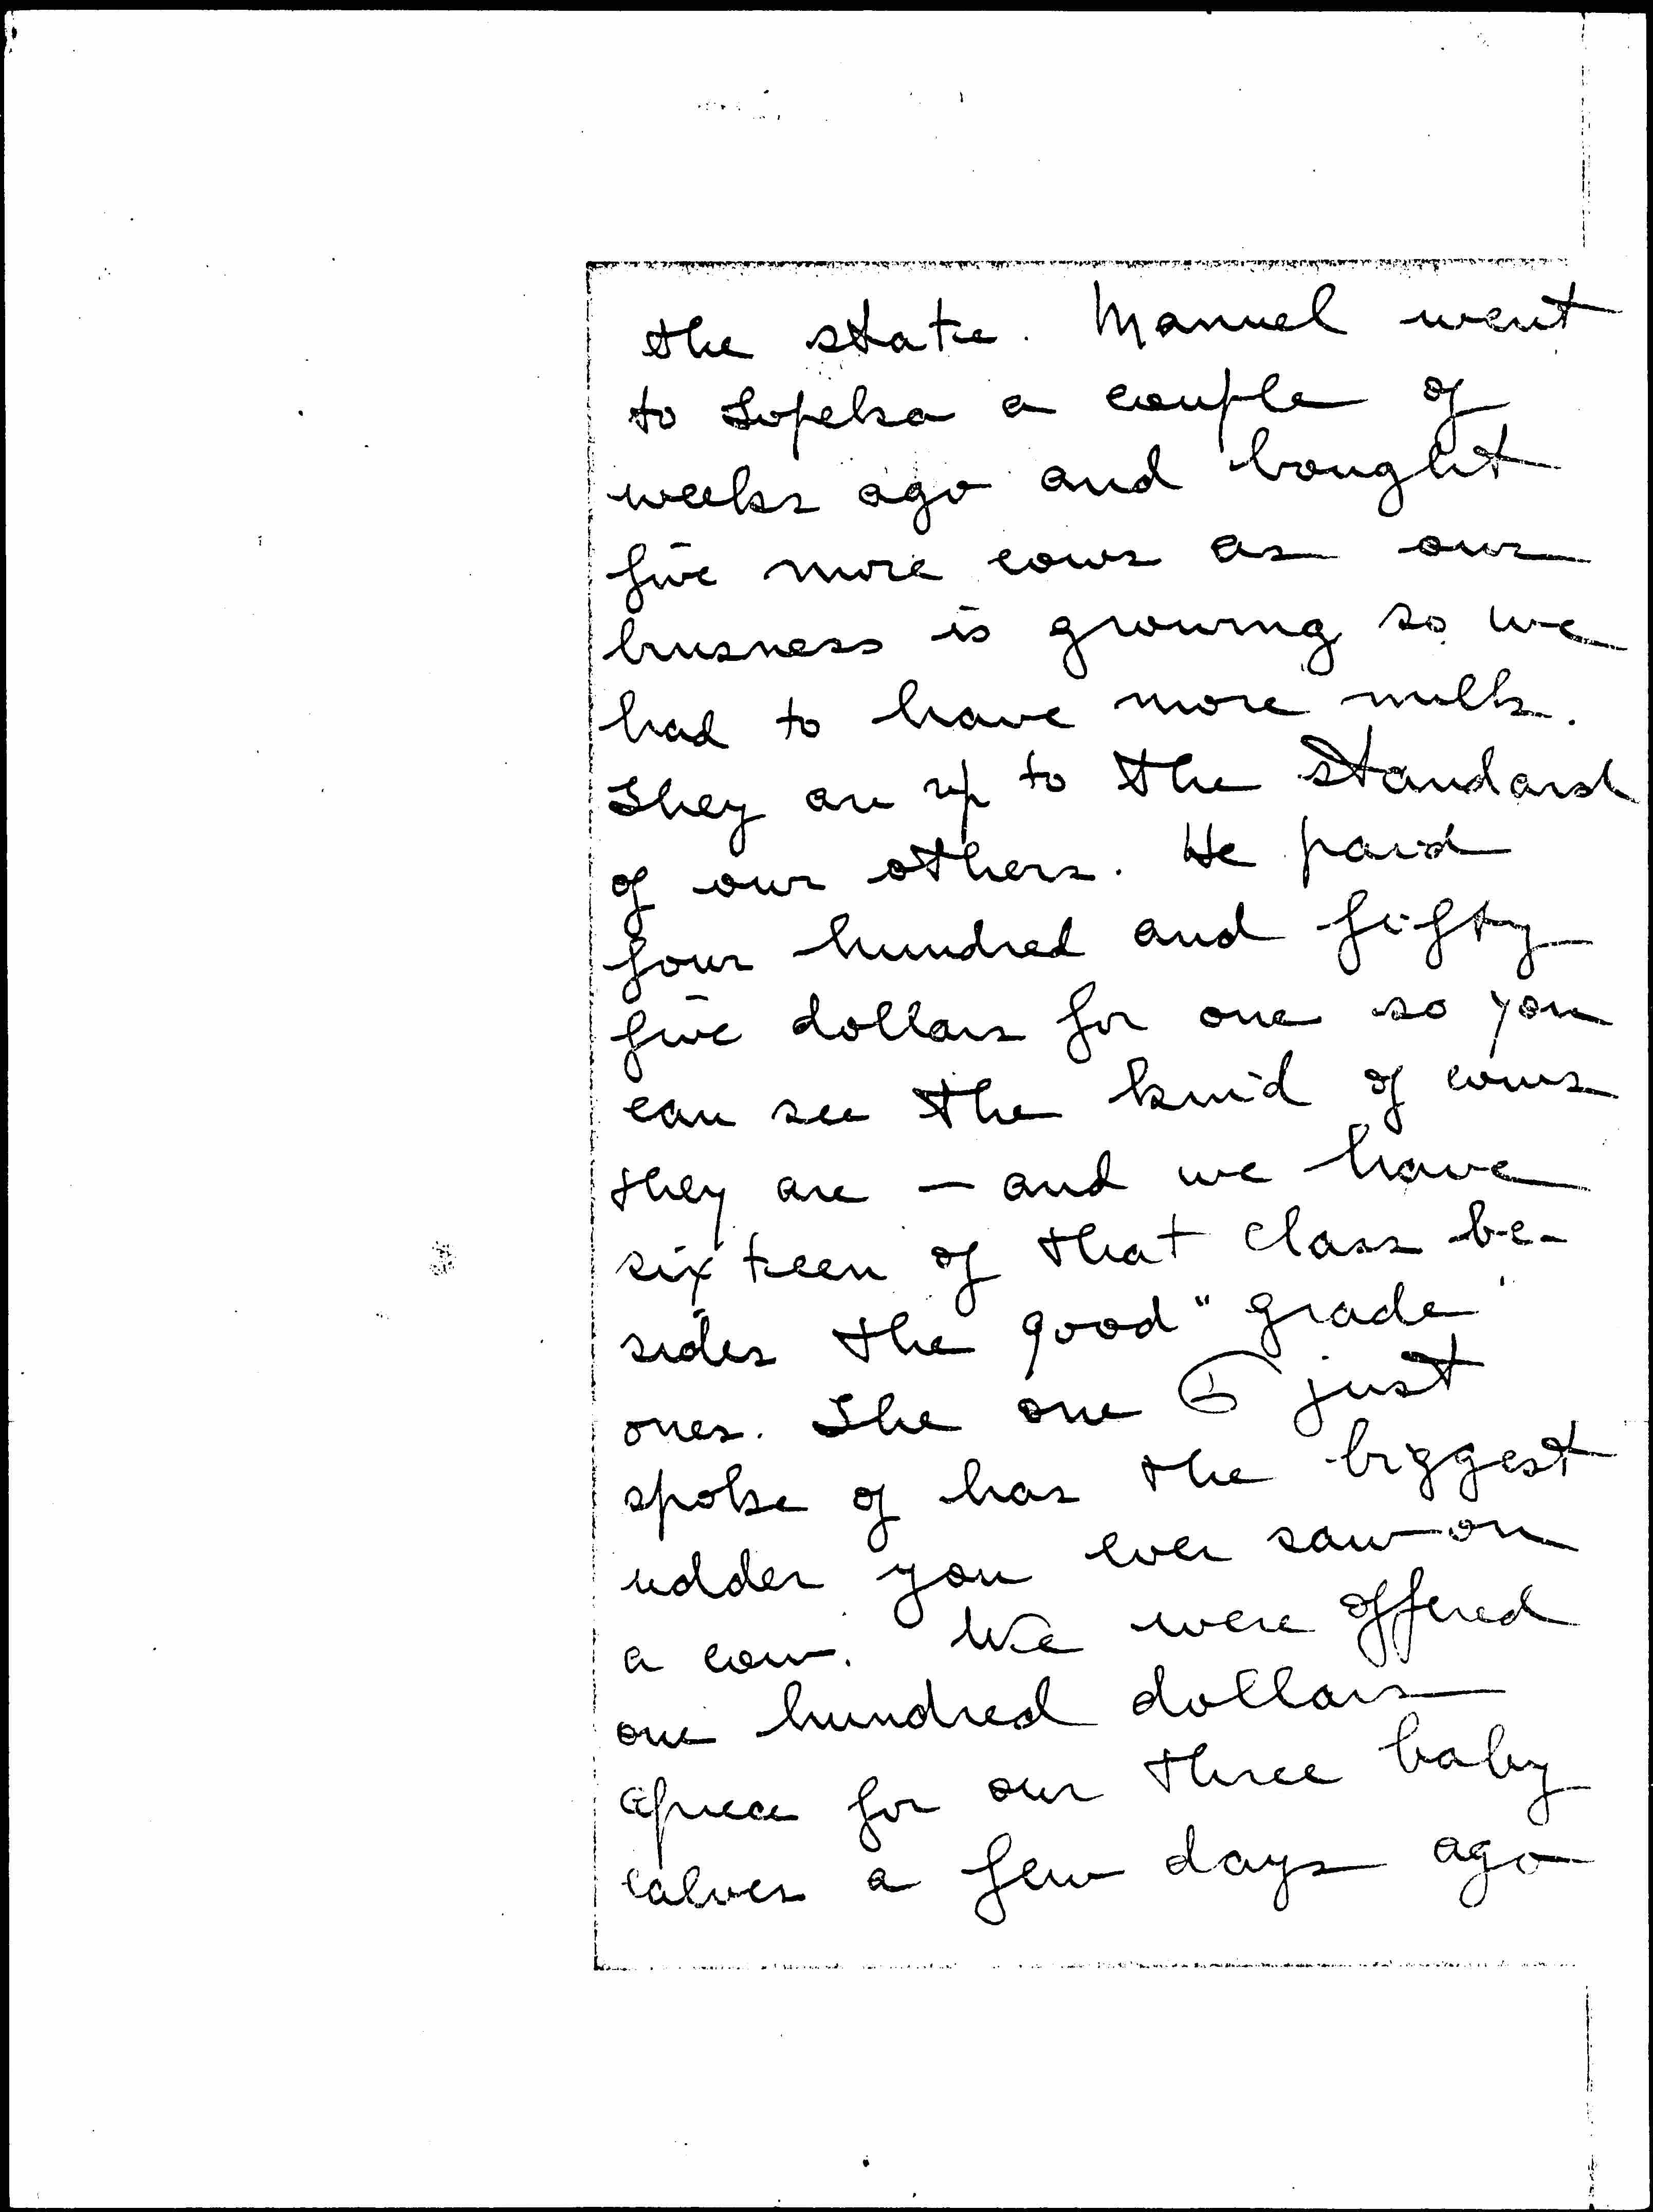 the state. Manuel went
to Topeka a couple of
weeks ago and bought
five more cows as our
busness is growing so we
had to have more milk.
They are up to the standard
of our others. He paid
four hundred and fifty
five dollars for one so you
can see the kind of cows
they are — and we have
sixteen of that class be-
sides the good "grade"
ones. The one I just
spoke of has the biggest
udder you ever saw on
a cow. We were offered
one hundred dollars
apiece for our three baby
calves a few days ago